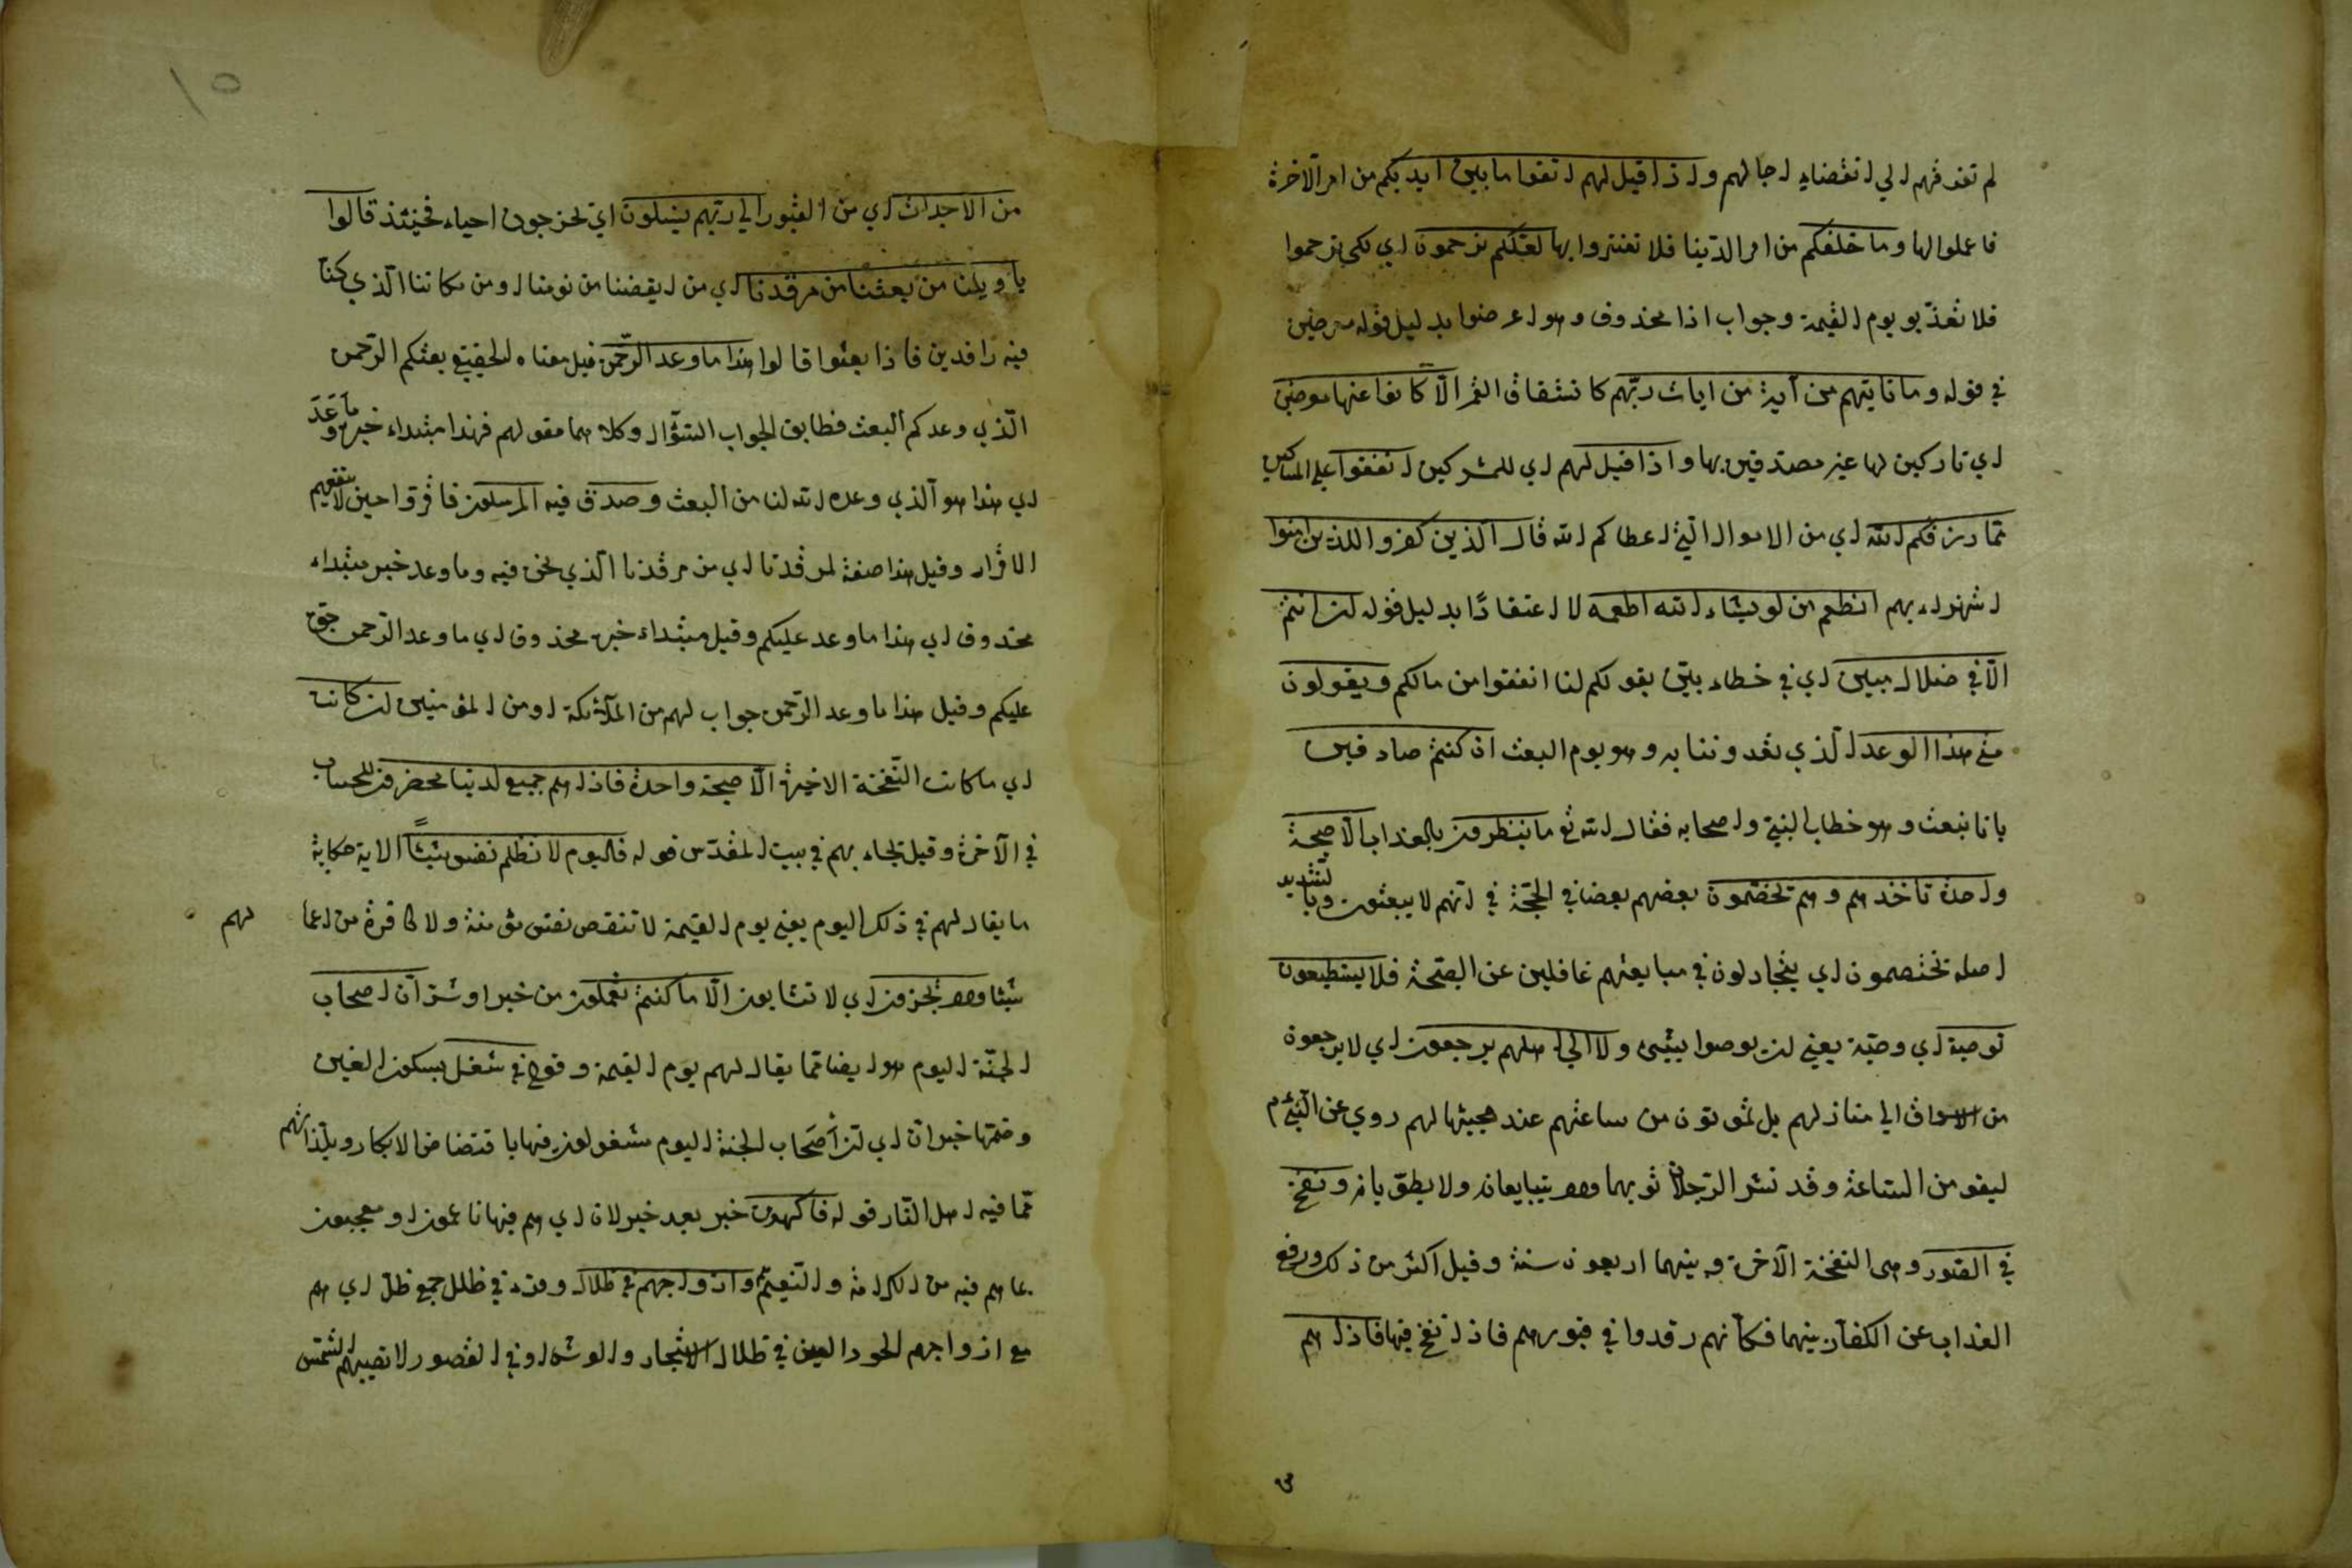 لم تغرقهم الي انقضاء اجالهم واذا قيل لهم اتقوا ما بين ايديكم من امر الآخرة
فاعملوا لها وما خلفكم من امر الدنيا فلا تغتروا بها لعلكم ترحمون اي لكي ترحموا
فلا تعذبو يوم القيمة وجواب اذا محذوف وهو اعرضوا بدليل قوله معرضين
في قوله وما تاتيهم من آية من ايات ربهم كانشقاق القمر الا كانوا عنها معرضين
اي تاركين لها غير مصدقين بها واذا قيل لهم اي للمشركين انفقوا علي المساكين
مما رزقكم الله اي من الاموال التي اعطاكم الله قال الذين كفروا للذين امنوا
استهزاء بهم انطعم من لو يشاء الله اطعمه لا اعتقادًا بدليل قوله ان انتم
الا في ضلال مبين اي في خطاء بين بقولكم لنا انفقوا من مالكم ويقولون
متي هذا الوعد الذي تعدوننا به وهو يوم البعث ان كنتم صادقين
بانا نبعث وهو خطاب النبي واصحابه فقال الله تع ما ينظرون بالعذاب الا صيحة
واحدة تاخذهم وهم يخصمون بعضهم بعضا في الحجة في انهم لا يبعثون وبالتشديد
اصله يختصمون اي يتجادلون في مبايعتهم غافلين عن الصيحة فلا يستطيعون
توصية اي وصية يعني ان يوصوا بشئ ولا الي اهلهم يرجعون اي لا يرجعون
من الاسواق الي منازلهم بل يموتون من ساعتهم عند مجيئها لهم روي عن النبي م
ليقومن الساعة وقد نشر الرجلان ثوبهما وهما يتبايعانه ولا يطويانه ونفخ
في الصور وهى النفخة الآخرة وبينهما اربعون سنة وقيل اكثر من ذلك ورفع
العذاب عن الكفار بينهما فكأنهم رقدوا في قبورهم فاذا نفخ فيها فاذا هم
١٥
من الاجداث اي من القبور الي ربهم ينسلون اي يخرجون احياء فحينئذ قالوا
يا ويلنا من بعثنا من مرقدنا اي من ايقضنا من نومنا او من مكاننا الذي كنا
فيه راقدين فاذا بعثوا قالوا هذا ما وعد الرحمن قيل معناه الحقيقي بعثكم الرحمن
الذي وعدكم البعث فطابق الجواب السؤال وكلاهما مقولهم فهذا مبتداء خبره ما وعد
اي هذا هو الذي وعده الله لنا من البعث وصدق فيه المرسلون فاقروا حين لا ينفعهم
الاقرار وقيل هذا صفة لمرقدنا اي من مرقدنا الذي نحن فيه وما وعد خبر مبتداء
محذوف اي هذا ما وعد عليكم وقيل مبتداء خبره محذوف اي ما وعد الرحمن حق
عليكم وقيل هذا ما وعد الرحمن جواب لهم من الملآئكة او من المؤمنين ان كانت
اي ما كانت النفخة الاخيرة الا صيحة واحدة فاذا هم جميع لدينا محضرون للحساب
في الآخرة وقيل يجاء بهم في بيت المقدس قوله فاليوم لا تظلم نفس شيئاً الاية حكاية
ما يقال لهم في ذلك اليوم يعني يوم القيمة لا تنقص نفس مؤمنة ولا كافرة من اعما لهم
شيئا ولا تجزون اي لا تثابون الا ما كنتم تعملون من خير او شر ان اصحاب
الجنة اليوم هو ايضا مما يقال لهم يوم القيمة وقوله في شغل بسكون الغين
وضمها خبر ان اي ان أصحاب الجنة اليوم مشغولون فيها باقتضاض الابكار ويلذاتهم
مما فيه اهل النار قوله فاكهون خبر بعد خبر لان اي هم فيها ناعمون او معجبون
بما هم فيه من الكرامة والنعيم هم وازواجهم في ظلال وقرء في ظلل جمع ظل اي هم
مع ازواجهم الحور العين في ظلال الاشجار والعرش او في القصور لا تصيبهم الشمس